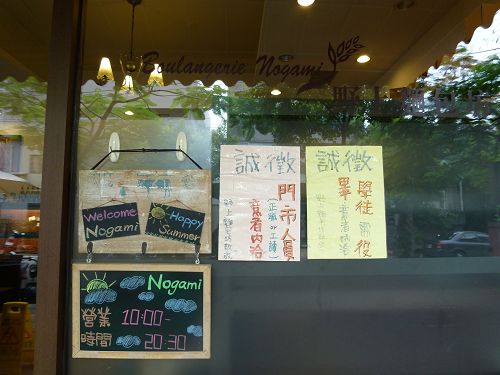 Boulangerie Nogami
野上麵包店
Welcome
Nogami
Happy
Summer
Nogami
營業 10:00-
時間 20:30
誠徵
門市人員
(正職 or 工讀)
意者內洽
誠徵
學徒 需役畢
意者內洽